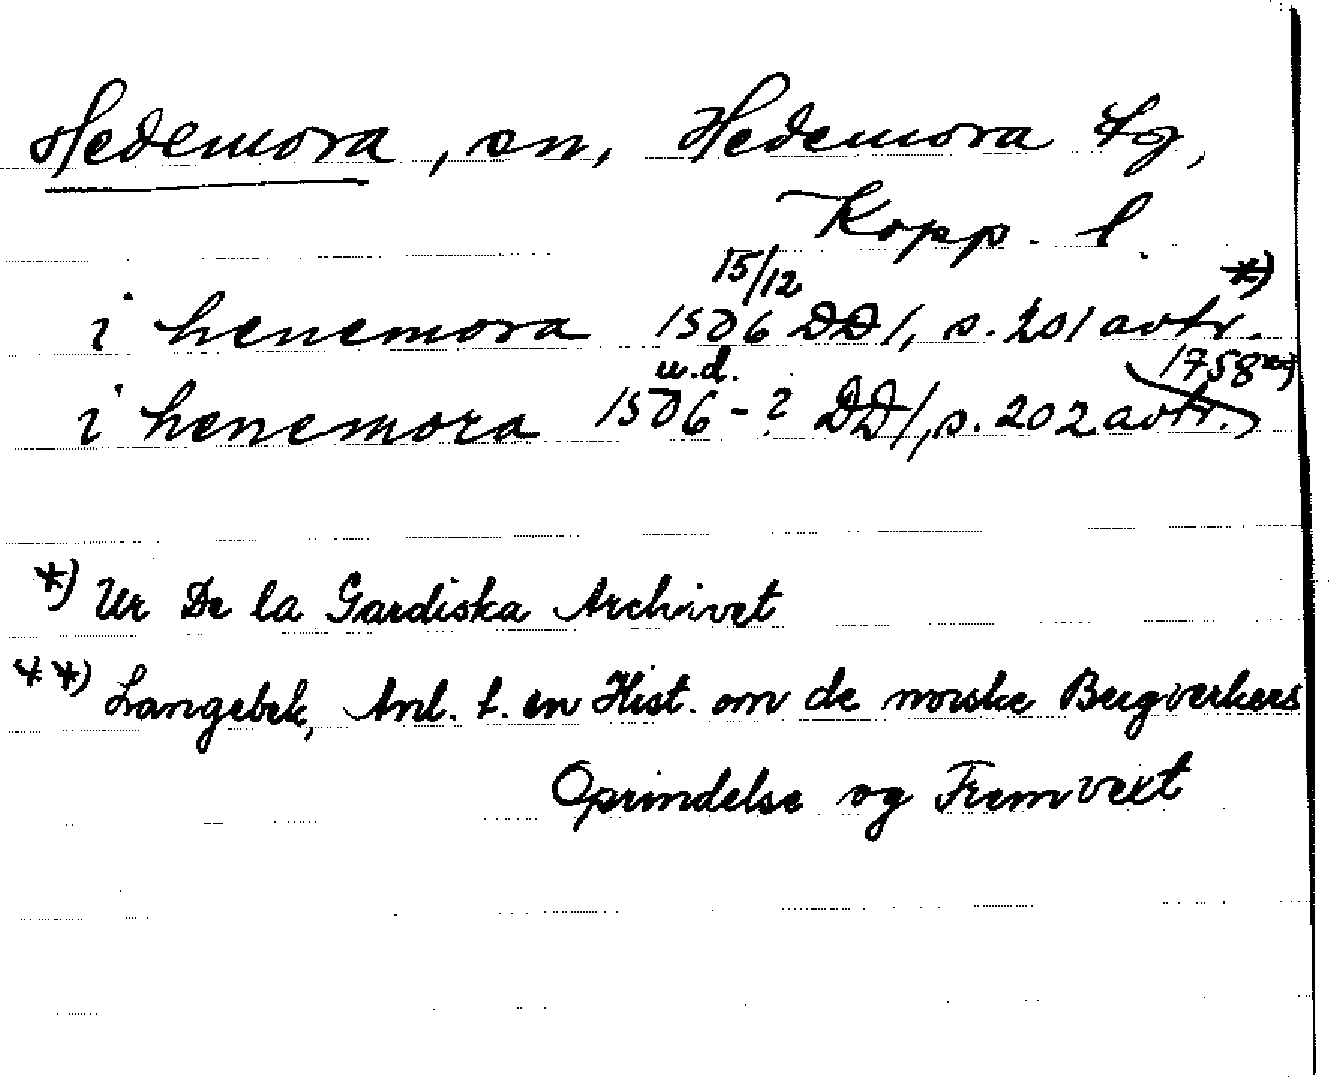 Hedemora, sn, Hedemora tg,
Kopp. l.
i henemora 15/12 1506 DD 1, s. 201 avtr. *)
i henemora u.d. 1506-? DD 1, s. 202 avtr. 1758 **)
*) Ur De la Gardiska Archivet
**) Langebek, Anl. t. en Hist. om de norske Bergverkers
Oprindelse og Fremvext